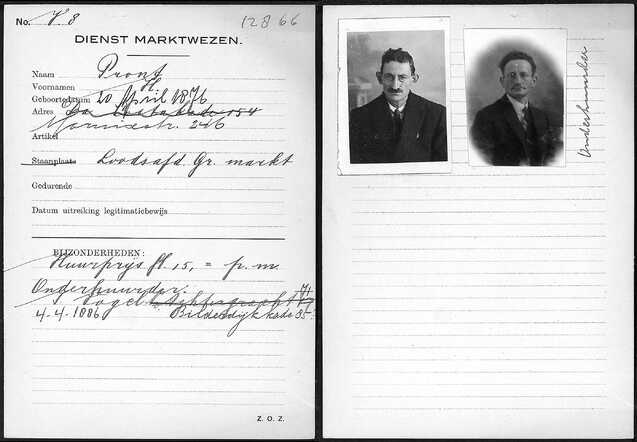 No. V. 8 12866
DIENST MARKTWEZEN.
Naam Pront
Voornamen H.
Geboortedatum 20 April 1876
Adres Da Costakade 154
Marnixstr. 246
Artikel
Staanplaats Loodsafd. Gr. markt
Gedurende
Datum uitreiking legitimatiebewijs
BIJZONDERHEDEN:
Huurprijs fl. 15,= p.m.
Onderhuurder:
Vogel Achtergracht 71
4-4-1886 Bilderdijkkade 35
Z. O. Z.
Onderhuurder